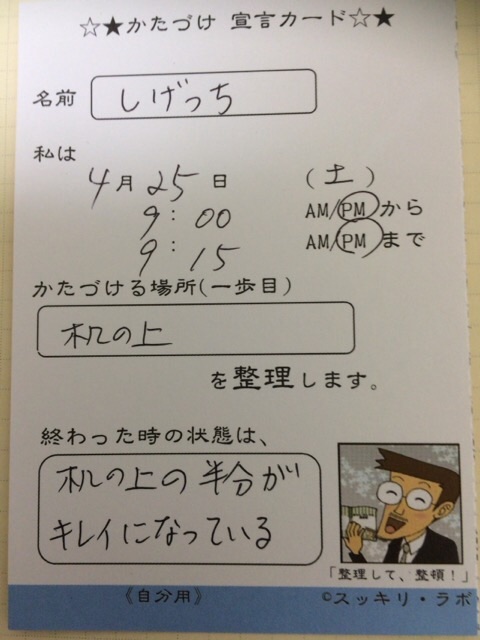 ☆★かたづけ 宣言カード☆★
名前 しげっち
私は
4月25日 (土)
9:00 AM/PMから
9:15 AM/PMまで
かたづける場所(一歩目)
机の上
を整理します。
終わった時の状態は、
机の上の半分が
キレイになっている
「整理して、整頓!」
《自分用》 ©スッキリ・ラボ